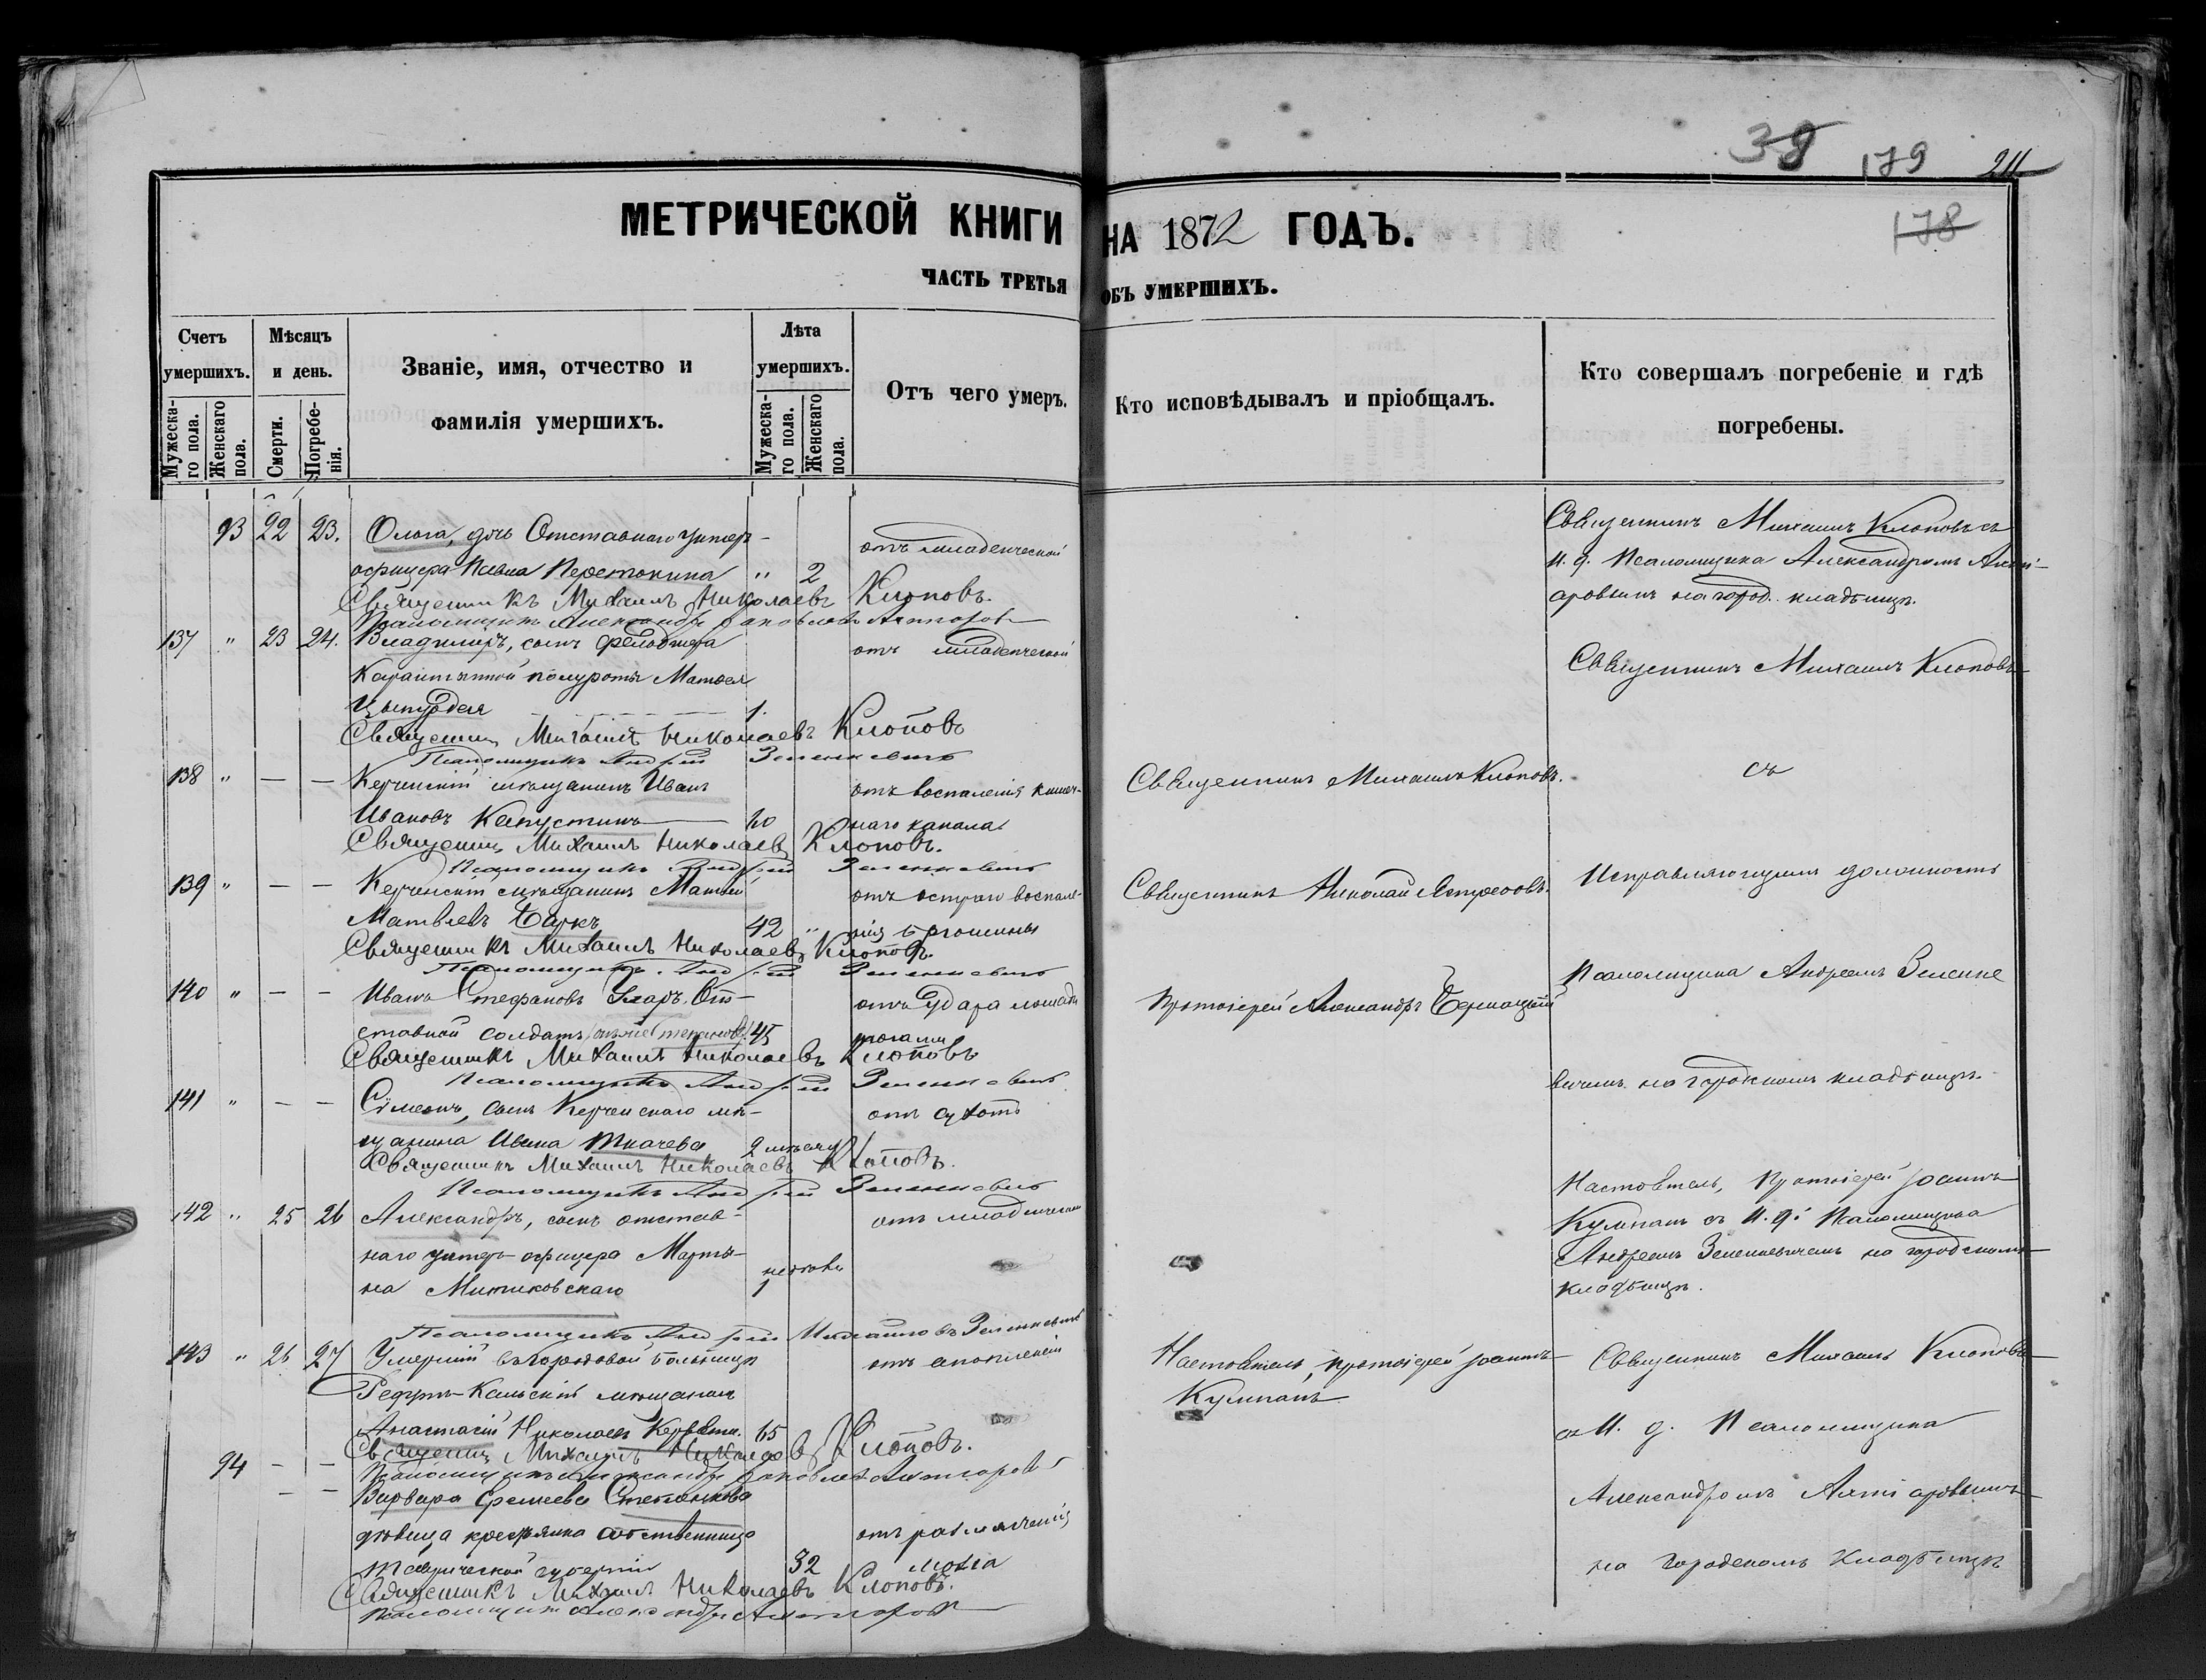 38 179 211
178
МЕТРИЧЕСКОЙ КНИГИ НА 1872 ГОДЪ.
ЧАСТЬ ТРЕТЬЯ ОБЪ УМЕРШИХЪ.
Счетъ умершихъ.
Мужеска-го пола.
Женскаго пола.
Мѣсяцъ и день.
Смерти.
Погребе-нія.
Званіе, имя, отчество и фамилія умершихъ.
Лѣта умершихъ.
Мужеска-го пола.
Женскаго пола.
Отъ чего умеръ.
Кто исповѣдывалъ и пріобщалъ.
Кто совершалъ погребеніе и гдѣ погребены.
93 22 23. Ольга, дочь Отставнаго унтеръ- отъ младенческой
офицера Павла Перетокина " 2
Священникъ Михаилъ Николаевъ Клоповъ.
Псаломщикъ Александръ Яковлевъ
Священникъ Михаилъ Клоповъ съ
и. д. Псаломщика Александромъ
на город. кладбищѣ.
137 " 23 24. Владиміръ, сынъ фельдшера отъ младенческой
Карантинной полуроты Матвея
1.
Священникъ Михаилъ Николаевъ Клоповъ
Псаломщикъ Андрей Зеленкевичъ
Священникъ Михаилъ Клоповъ
138 " — — Керченскій мѣщанинъ Иванъ отъ воспаленія кишеч- Священникъ Михаилъ Клоповъ. съ
Ивановъ Капустинъ 60 наго канала
Священникъ Михаилъ Николаевъ Клоповъ.
Псаломщикъ Андрей Зеленкевичъ
139 " — — Керченскій мѣщанинъ Матвей отъ остраго воспале- Священникъ Николай Исправляющимъ должность
Матвѣевъ 42 " нія брюшины
Священникъ Михаилъ Николаевъ Клоповъ.
Псаломщикъ Андрей Зеленкевичъ
140 " — — Иванъ Стефановъ От- отъ удара лошади Протоіерей Александръ Псаломщика Андреемъ Зеленке
ставной солдатъ 45 ногами
Священникъ Михаилъ Николаевъ Клоповъ
Псаломщикъ Андрей Зеленкевичъ
вичемъ на городскомъ кладбищѣ.
141 " — — Симеонъ, сынъ Керченскаго мѣ- отъ сухотъ
щанина Ивана Ткачева 2 мѣсяц.
Священникъ Михаилъ Николаевъ Клоповъ.
Псаломщикъ Андрей Зеленкевичъ
142 " 25 26 Александръ, сынъ отстав- отъ младенческой
наго унтеръ-офицера Марты-
на Митиковскаго 1
Псаломщикъ Андрей Михайловъ Зеленкевичъ
Настоятель, Протоіерей Іоаннъ
Кумпанъ съ И. д. Псаломщика
Андреемъ Зеленкевичемъ на городскомъ
кладбищѣ.
143 " 26 27 Умершій въ городовой больницѣ отъ апоплексіи Настоятель, протоіерей Іоаннъ
Кумпанъ
Редутъ-Кальскій мѣщанинъ
Анастасій Николаевъ 65
Священникъ Михаилъ Николаевъ Клоповъ.
Псаломщикъ Александръ Яковлевъ
Священникъ Михаилъ Клоповъ
съ И. д. Псаломщика
Александромъ
на городскомъ кладбищѣ
94 — —
Варвара Еремеева Степанкова
дѣвица крестьянка собственница отъ размягченія
Таврической губерніи 32 мозга
Священникъ Михаилъ Николаевъ Клоповъ.
Псаломщикъ Александръ